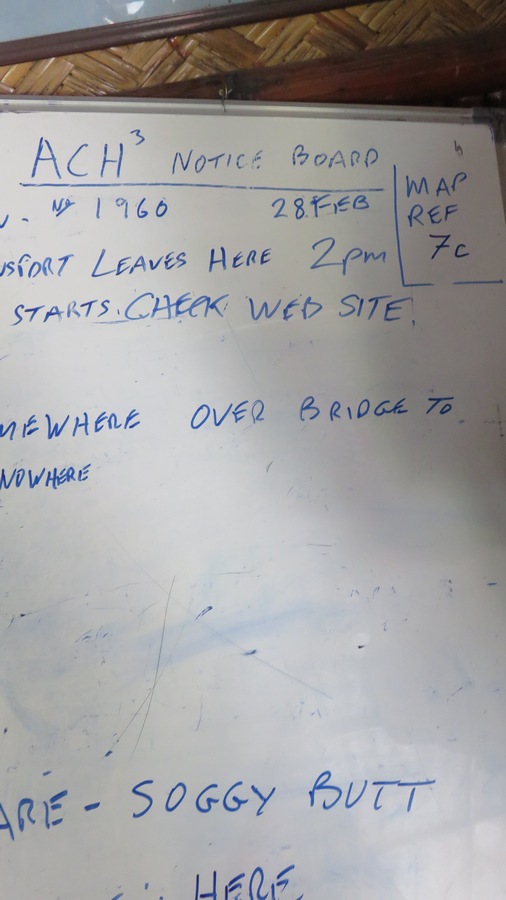 ACH³ NOTICE BOARD
MAP
REF
7c
No 1960 28 FEB
LEAVES HERE 2pm
STARTS. CHECK WEB SITE.
OVER BRIDGE TO
NOWHERE
ARE - SOGGY BUTT
HERE